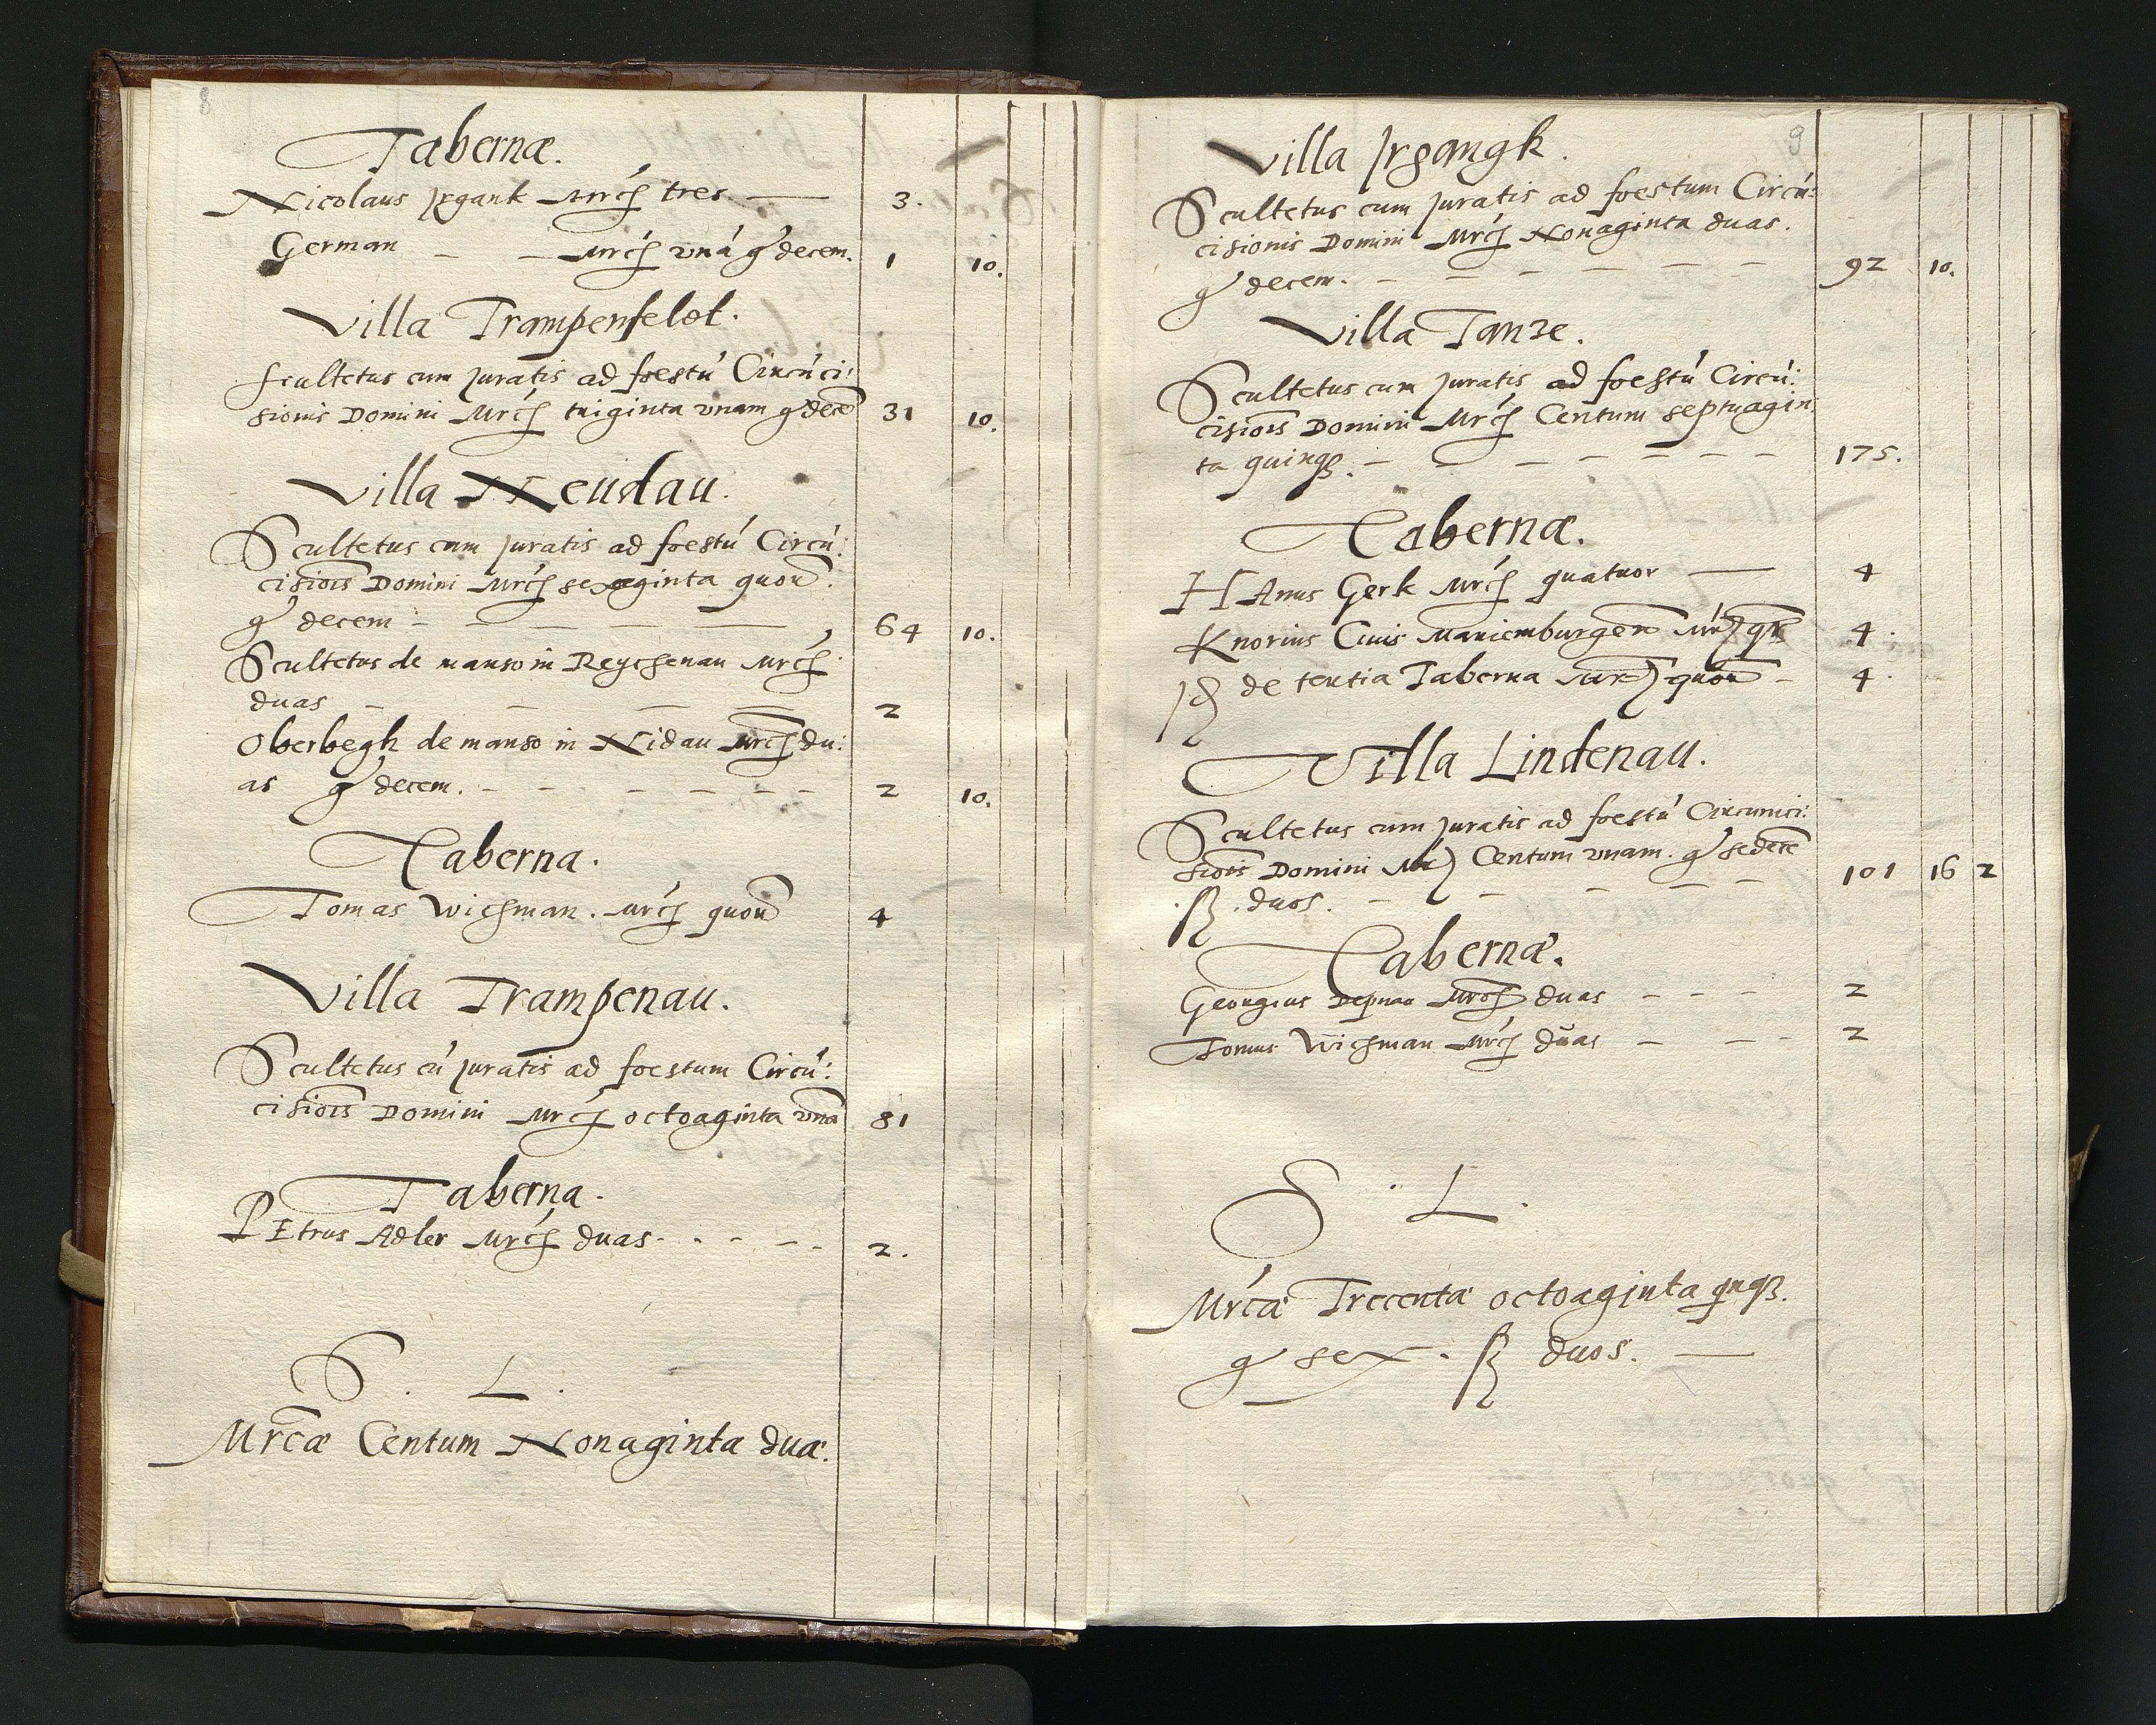 8
Tabernæ.
Nicolaus Jrgank Mrcś tres — 3.
German — — Mrcś vná gʼ decem. 1 10.
Villa Trampenfeldt.
Scultetus cum Juratis ad foestú Circúci:
sionis Domini Mrcś triginta vnam gʼ decē 31 10.
Villa Neudau.
Scultetus cum Juratis ad foestú Circú:
cisiōis Domini Mrcś sexaginta quoūr
gʼ decem — — — — 64 10.
Scultetus de manso in Reychenau Mrcś
duas — — — — 2
Oberbegk de manso in Nidau Mrcś du:
as gʼ decem. — — — — — — 2 10.
Taberna.
Tomas Wichman. Mrcś quoūr 4
Villa Trampenau.
Scultetus cú Juratis ad foestum Circú:
cisiōis Domini Mrcś octoaginta vnā 81
Taberna.
PEtrus Adler Mrcś duas. - - - - - 2.
S. L.
Mrcæ Centum Nonaginta duæ.
9
Villa Jrgangk.
Scultetus cum Juratis ad foestum Circú:
cisionis Domini Mrcś Nonaginta duas.
gʼ decem. — — — — — — 92 10.
Villa Tanse.
Scultetus cum Juratis ad foestú Circú:
cisiōis Domini Mrcś Centum septuagin
ta quinqꝫ. — — — — — — — 175.
Tabernæ.
HAnus Gerk Mrcś quatuor — 4
Knorius Ciuis Mariemburgeñ Mrcś qr̄ 4.
Jꝫ de tertia Taberna Mrcś quoūr — 4.
Villa Lindenau.
Scultetus cum Juratis ad foestú Circumci:
siōis Domini Mrcś Centum vnam. gʼ sedecē
ꝭ. duos. — — — — — 101 16 2
Tabernæ.
Georgius Depnau Mrcś duas — — — 2
Tomus Wichman Mrcś duas — — — 2
S. L.
Mrcæ Trecentæ octoaginta qnqꝫ.
gʼ sex. ꝭ duos. —